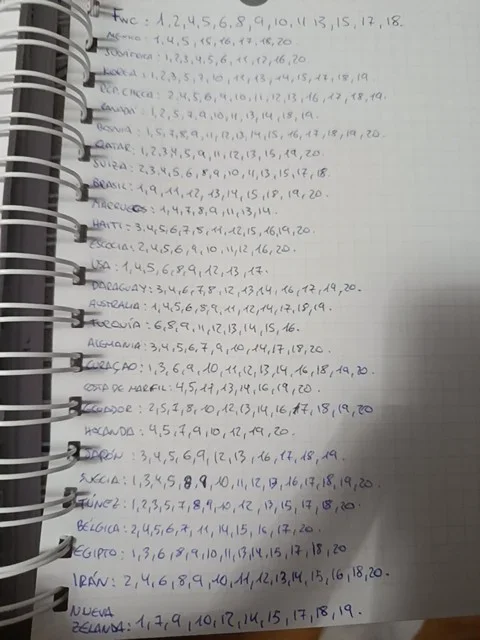 FWC : 1,2,4,5,6,8,9,10,11,13,15,17,18.
MÉXICO : 1,4,5,15,16,17,18,20
SUDÁFRICA : 1,2,3,4,5,6,11,12,16,20
COREA : 1,2,3,5,7,10,11,13,14,15,17,18,19
REP. CHECA : 2,4,5,6,9,10,11,12,13,16,17,18,19.
CANADÁ : 1,2,5,7,9,10,11,13,14,18,19.
BOSNIA : 1,5,7,8,9,11,12,13,14,15,16,17,18,19,20
QATAR : 1,2,3,4,5,9,11,12,13,15,19,20.
SUIZA : 2,3,4,5,6,8,9,10,11,13,15,17,18.
BRASIL : 1,9,11,12,13,14,15,18,19,20.
MARRUECOS : 1,4,7,8,9,11,13,14.
HAITÍ : 3,4,5,6,7,8,11,12,15,16,19,20.
ESCOCIA : 2,4,5,6,9,10,11,12,16,20.
USA : 1,4,5,6,8,9,12,13,17.
PARAGUAY : 3,4,6,7,8,12,13,14,16,17,19,20.
AUSTRALIA : 1,4,5,6,8,9,11,12,14,17,18,19.
TURQUÍA : 6,8,9,11,12,13,14,15,16.
ALEMANIA : 3,4,5,6,7,9,10,14,17,18,20.
CURAÇAO : 1,3,6,9,10,11,12,13,14,16,18,19,20.
COSTA DE MARFIL : 4,5,11,13,14,16,19,20.
ECUADOR : 2,5,7,8,10,12,13,14,16,17,18,19,20
HOLANDA : 4,5,7,9,10,12,19,20.
JAPÓN : 3,4,5,6,9,12,13,16,17,18,19.
SUECIA : 1,3,4,5,8,9,10,11,12,13,16,17,18,19,20.
TÚNEZ : 1,2,3,5,7,8,9,10,12,13,15,17,18,20.
BÉLGICA : 2,4,5,6,7,11,14,15,16,17,20.
EGIPTO : 1,3,6,8,9,10,11,13,14,15,17,18,20
IRÁN : 2,4,6,8,9,10,11,12,13,14,15,16,18,20.
NUEVA
ZELANDA : 1,7,9,10,12,14,15,17,18,19.